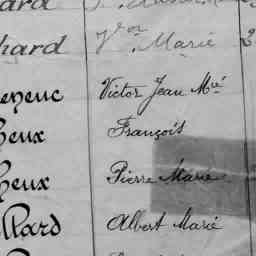 ard
hard Jn Marie 2
eneuc Victor Jean Mie
heux François
heux Pierre Marie
llard Albert Marie